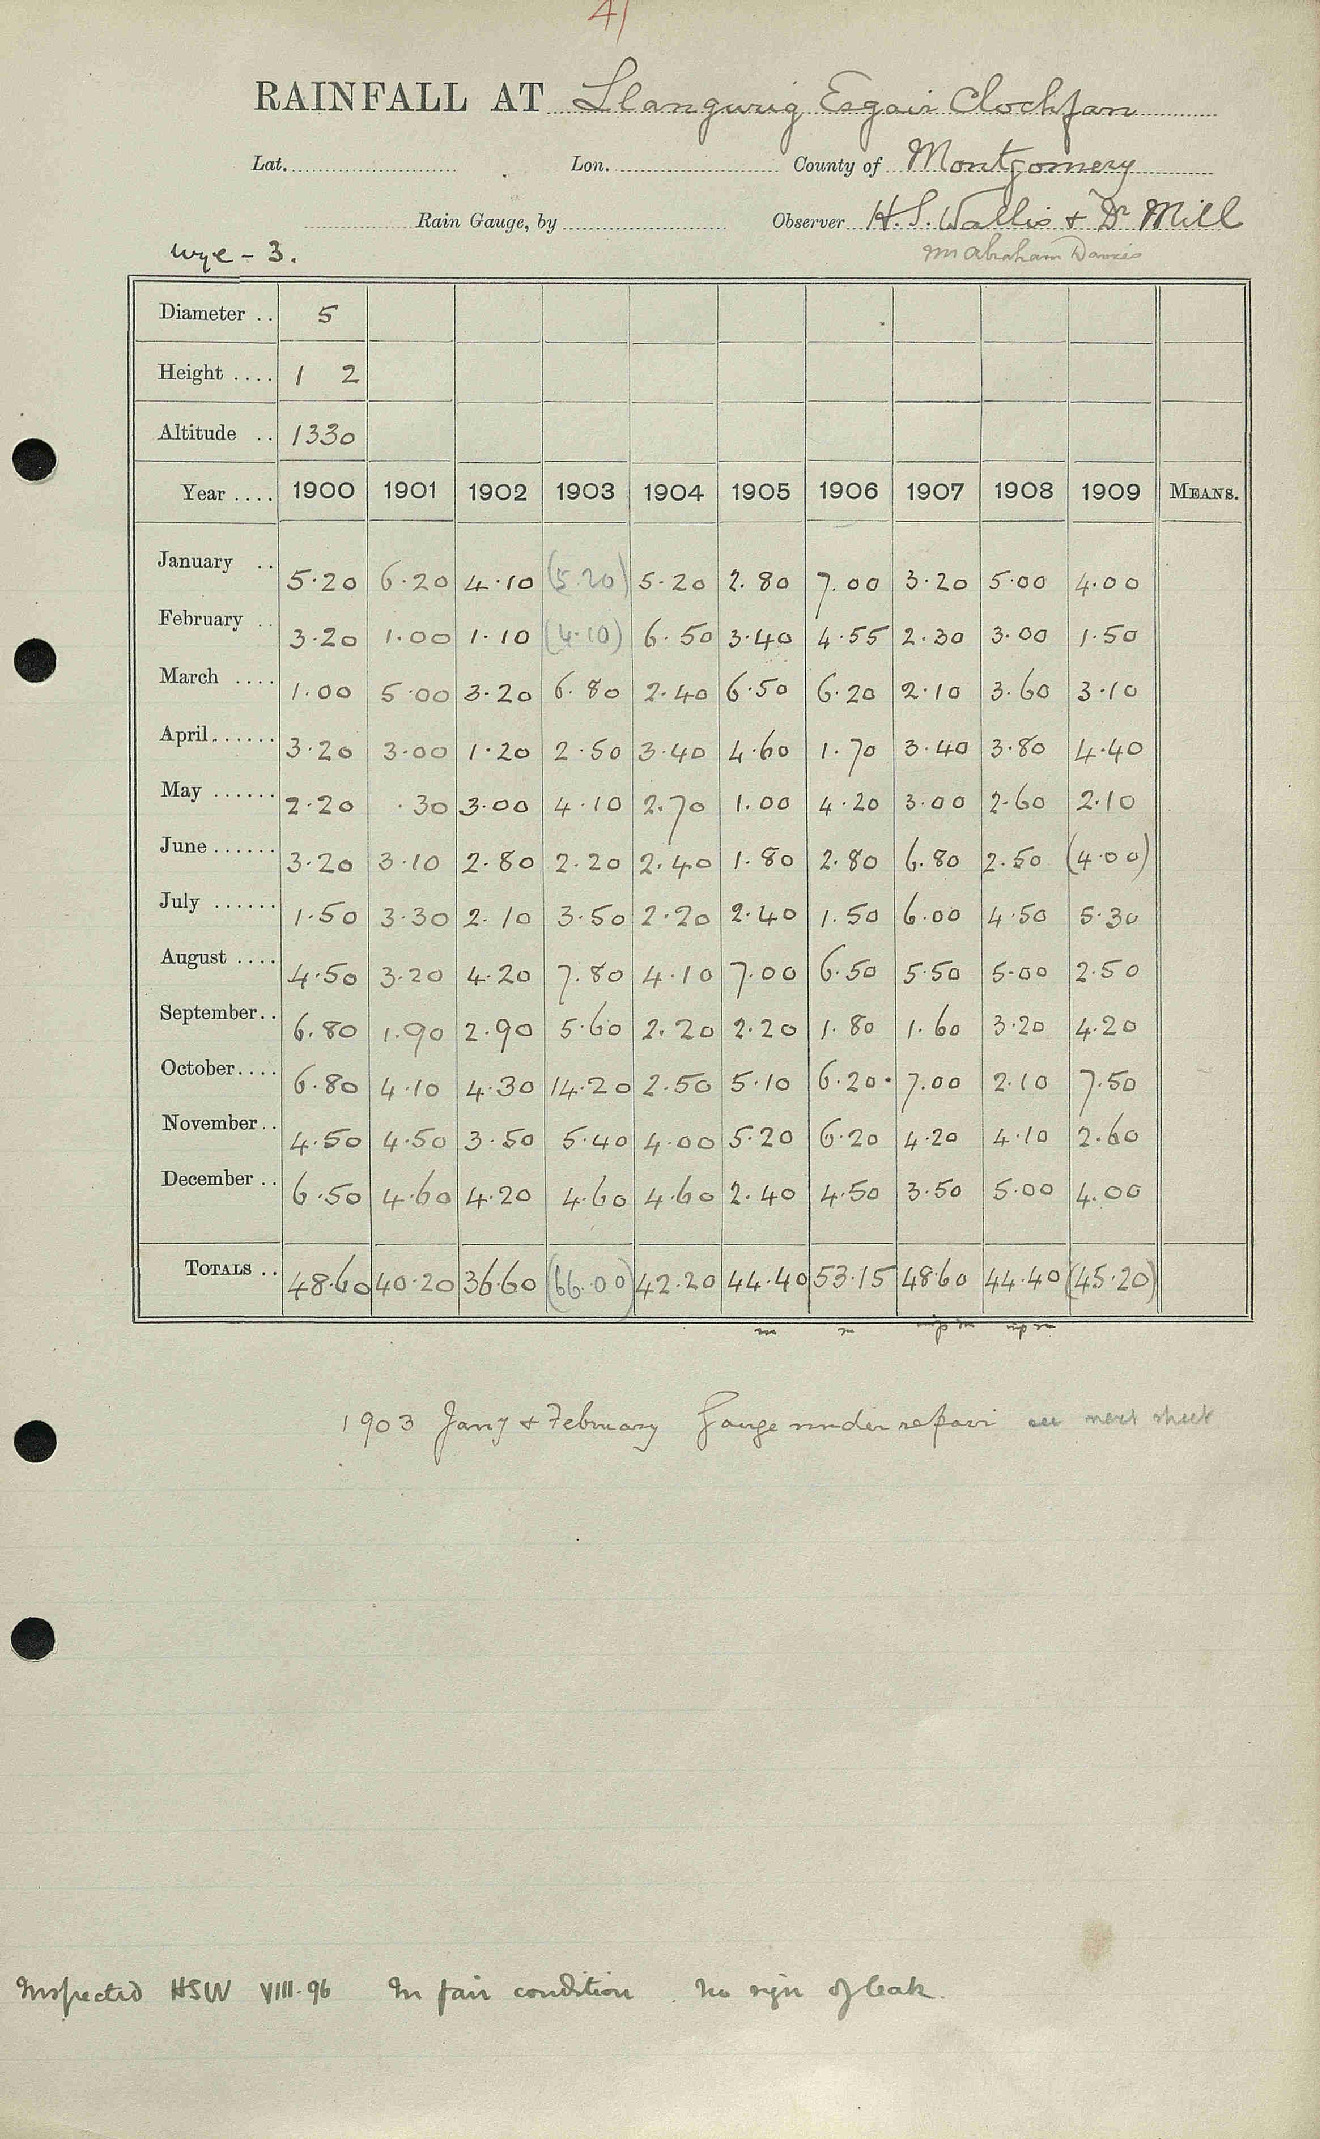 41
RAINFALL AT Llangurig Esgair Clochfan
Lat. Lon. County of Montgomery
Rain Gauge, by Observer H. S. Wallis & Dr Mill
Wye - 3. Mr Abraham Davies
Diameter .. 5
Height .... 1 2
Altitude .. 1330
Year .... 1900 1901 1902 1903 1904 1905 1906 1907 1908 1909 MEANS.
January .. 5.20 6.20 4.10 (5.20) 5.20 2.80 7.00 3.20 5.00 4.00
February .. 3.20 1.00 1.10 (4.10) 6.50 3.40 4.55 2.30 3.00 1.50
March .... 1.00 5.00 3.20 6.80 2.40 6.50 6.20 2.10 3.60 3.10
April...... 3.20 3.00 1.20 2.50 3.40 4.60 1.70 3.40 3.80 4.40
May ...... 2.20 .30 3.00 4.10 2.70 1.00 4.20 3.00 2.60 2.10
June ...... 3.20 3.10 2.80 2.20 2.40 1.80 2.80 6.80 2.50 (4.00)
July ...... 1.50 3.30 2.10 3.50 2.20 2.40 1.50 6.00 4.50 5.30
August .... 4.50 3.20 4.20 7.80 4.10 7.00 6.50 5.50 5.00 2.50
September.. 6.80 1.90 2.90 5.60 2.20 2.20 1.80 1.60 3.20 4.20
October.... 6.80 4.10 4.30 14.20 2.50 5.10 6.20. 7.00 2.10 7.50
November.. 4.50 4.50 3.50 5.40 4.00 5.20 6.20 4.20 4.10 2.60
December .. 6.50 4.60 4.20 4.60 4.60 2.40 4.50 3.50 5.00 4.00
TOTALS .. 48.60 40.20 36.60 (66.00) 42.20 44.40 53.15 48.60 44.40 (45.20)
1903 Jany & February Gauge under repair see next sheet
Inspected HSW VIII.96 In fair condition. No sign of leak.